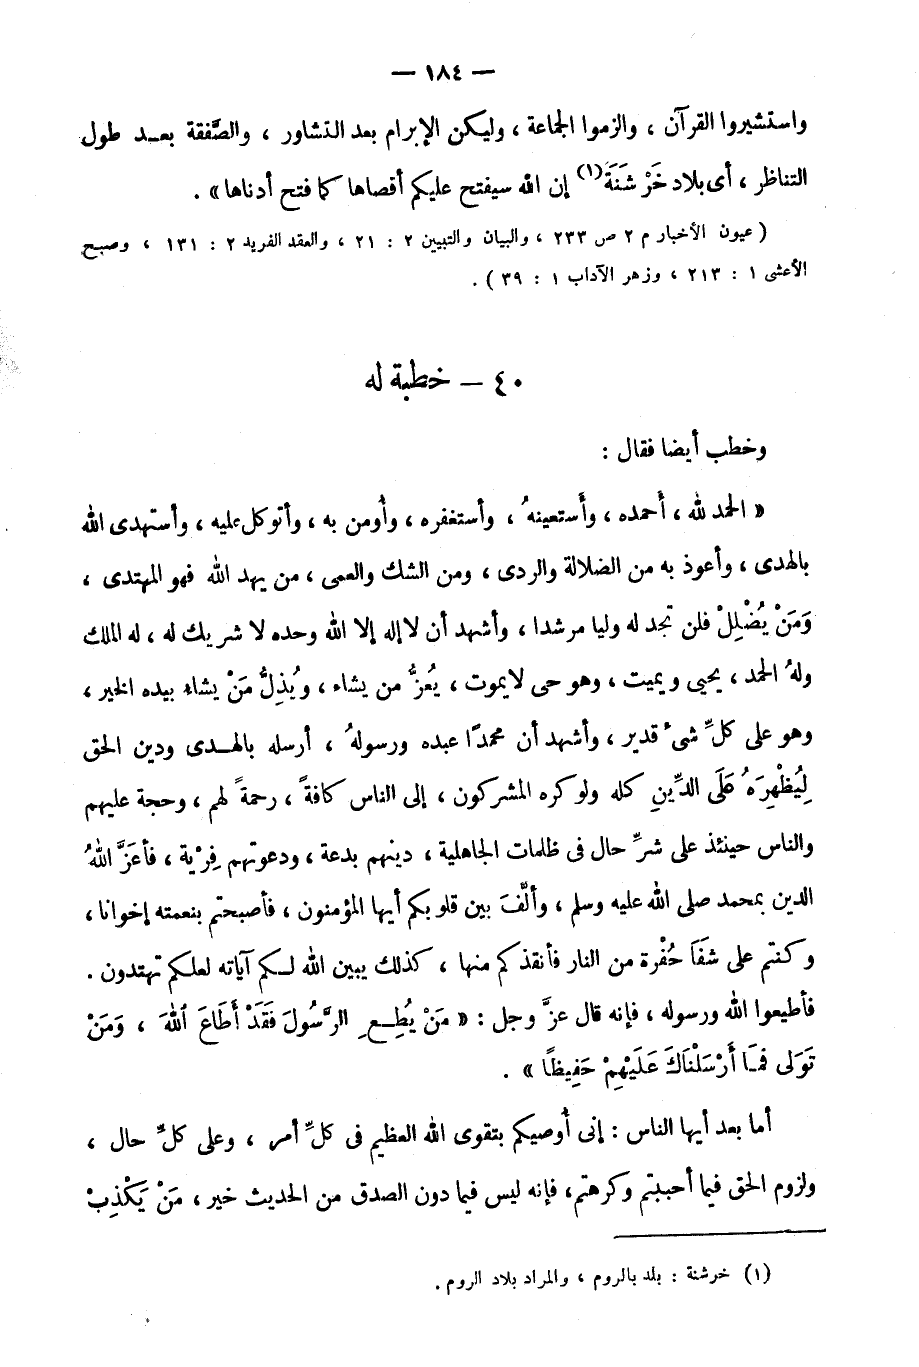 — ١٨٤ —
واستشيروا القرآن ، والزموا الجماعة ، وليكن الإبرام بعد التشاور ، والصَّفقة بعـد طول
التناظر ، أى بلاد خَرْشَنَةَ(١) إن الله سيفتح عليكم أقصاها كما فتح أدناها » .
( عيون الأخبار م ٢ ص ٢٣٣ ، والبيان والتبيين ٢ : ٢١ ، والعقد الفريد ٢ : ١٣١ ، وصبح
الأعشى ١ : ٢١٣ ، وزهر الآداب ١ : ٣٩ ) .
٤٠ — خطبة له
وخطب أيضا فقال :
« الحمد لله ، أَحمده ، وأَستعينهُ ، وأستغفره ، وأُومن به ، وأتوكل عليه ، وأستهدى الله
بالهدى ، وأعوذ به من الضلالة والردى ، ومن الشك والعمى ، من يهد الله فهو المهتدى ،
وَمَنْ يُضْلِلْ فلن تجد له وليا مرشدا ، وأشهد أن لا إله إلا الله وحده لا شريك له ، له الملك
ولهُ الحمد ، يحيى ويميت ، وهو حى لا يموت ، يُعزُّ من يشاء ، ويُذِلُّ مَنْ يشاء بيده الخير ،
وهو على كلِّ شىء قدير ، وأشهد أن محمدًا عبده ورسولهُ ، أرسله بالهـدى ودين الحق
لِيُظْهِرَهُ عَلَى الدِّينِ كله ولو كره المشركون ، إلى الناس كافةً ، رحمةً لهم ، وحجة عليهم
والناس حينئذ على شرِّ حال فى ظلمات الجاهلية ، دينهم بدعة ، ودعوتهم فِرْية ، فأعَزَّ اللهُ
الدين بمحمد صلى الله عليه وسلم ، وألَّفَ بين قلوبكم أيها المؤمنون ، فأصبحتم بنعمته إخوانا ،
وكنتم على شَفَا حُفْرة من النار فأنقذكم منها ، كذلك يبين الله لـكم آياته لعلكم تهتدون .
فأطيعوا الله ورسوله ، فإنه قال عزَّ وجل : « مَنْ يُطِـعِ الرَّسُولَ فَقَدْ أَطَاعَ اللهَ ، وَمَنْ
تَوَلى فَمَا أَرْسَلْنَاكَ عَلَيْهِمْ حَفِيظًا » .
أما بعد أيها الناس : إنى أُوصيكم بتقوى الله العظيم فى كلِّ أمر ، وعلى كلِّ حال ،
ولزوم الحق فيما أحببتم وكرهتم، فإنه ليس فيما دون الصدق من الحديث خير ، مَنْ يَكْذِبْ
(١) خرشنة : بلد بالروم ، والمراد بلاد الروم .